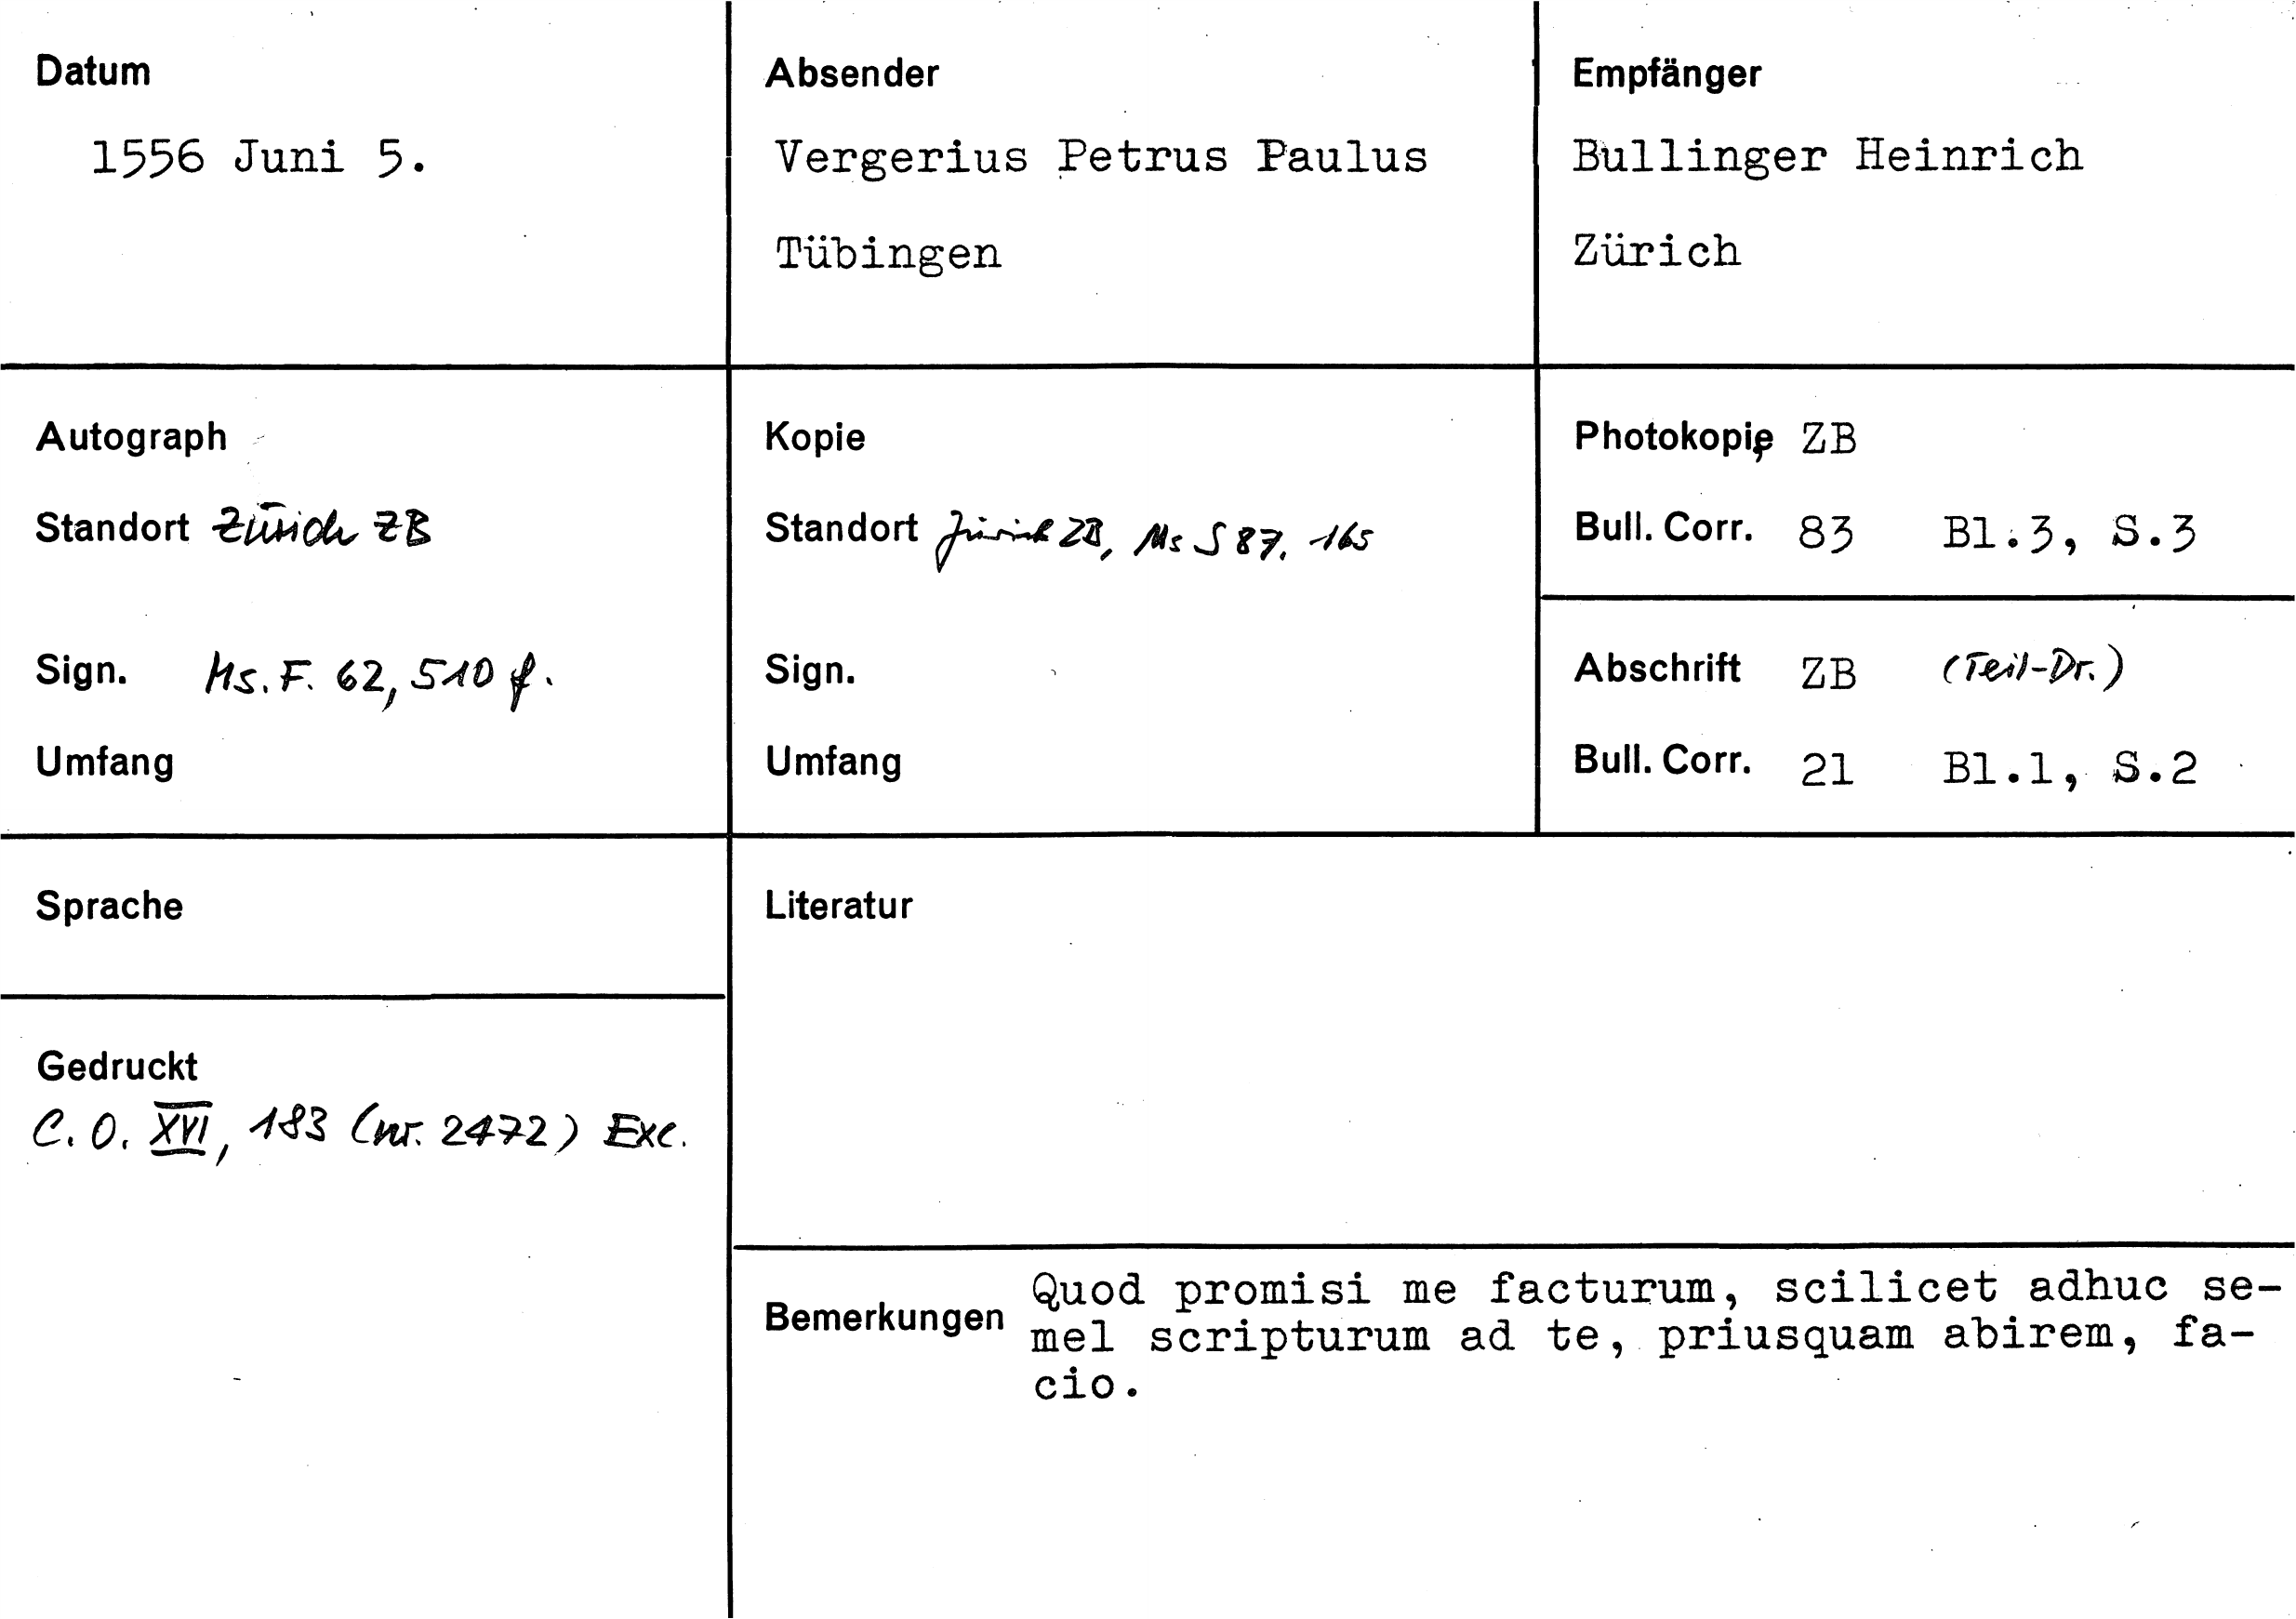 Datum
1556 Juni 5.
Absender
Vergerius Petrus Paulus
Tübingen
Empfänger
Bullinger Heinrich
Zürich
Autograph
Standort Zürich ZB
Sign. Ms. F. 62, 510 f.
Umfang
Kopie
Standort Zürich ZB, Ms S 87, 165
Sign.
Umfang
Photokopie ZB
Bull. Corr. 83 Bl.3, S.3
Abschrift ZB (Teil-Dr.)
Bull. Corr. 21 Bl.1, S.2
Sprache
Gedruckt
C. O. XVI, 183 (nr. 2472) Exc.
Literatur
Bemerkungen
Quod promisi me facturum, scilicet adhuc se-
mel scripturum ad te, priusquam abirem, fa-
cio.